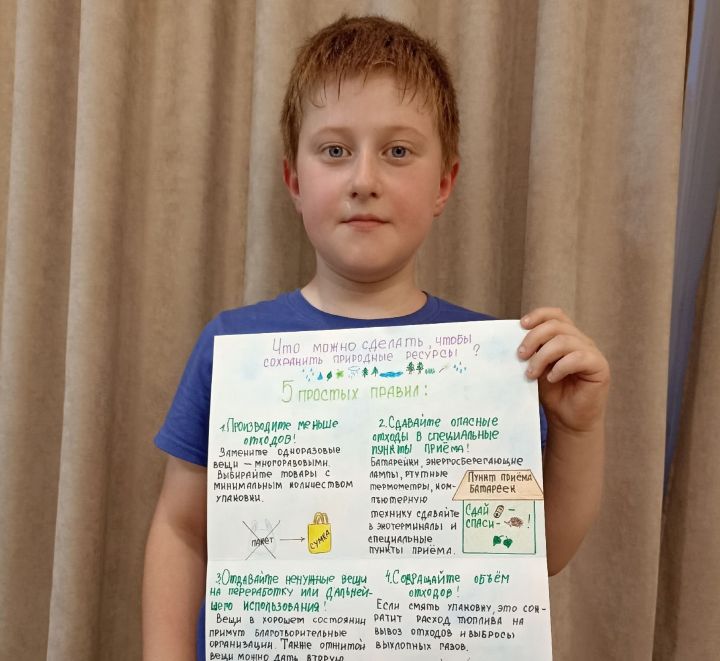 Что можно сделать, чтобы
сохранить природные ресурсы?
5 простых правил:
1. Производите меньше
отходов!
Замените одноразовые
вещи – многоразовыми.
Выбирайте товары с
минимальным количеством
упаковки.
пакет
сумка
2. Сдавайте опасные
отходы в специальные
пункты приёма!
Батарейки, энергосберегающие
лампы, ртутные
термометры, ком-
пьютерную
технику сдавайте
в экотерминалы и
специальные
пункты приёма.
Пункт приёма
батареек
Сдай –
спаси – !
3. Отдавайте ненужные вещи
на переработку или дальней-
шего использования!
Вещи в хорошем состоянии
примут благотворительные
организации. Также отжитой
вещи можно дать вторую
4. Сокращайте объём
отходов!
Если смять упаковку, это сок-
ратит расход топлива на
вывоз отходов и выбросы
выхлопных газов.